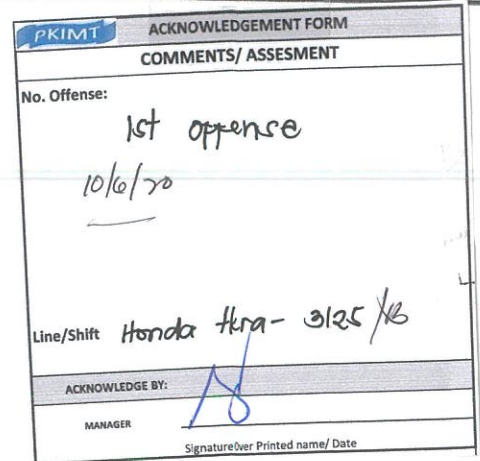 PKIMT
ACKNOWLEDGEMENT FORM
COMMENTS/ ASSESMENT
No. Offense:
1st offense
10/6/20
Line/Shift Honda tkra- 3125
ACKNOWLEDGE BY:
MANAGER
Signature Over Printed name/ Date